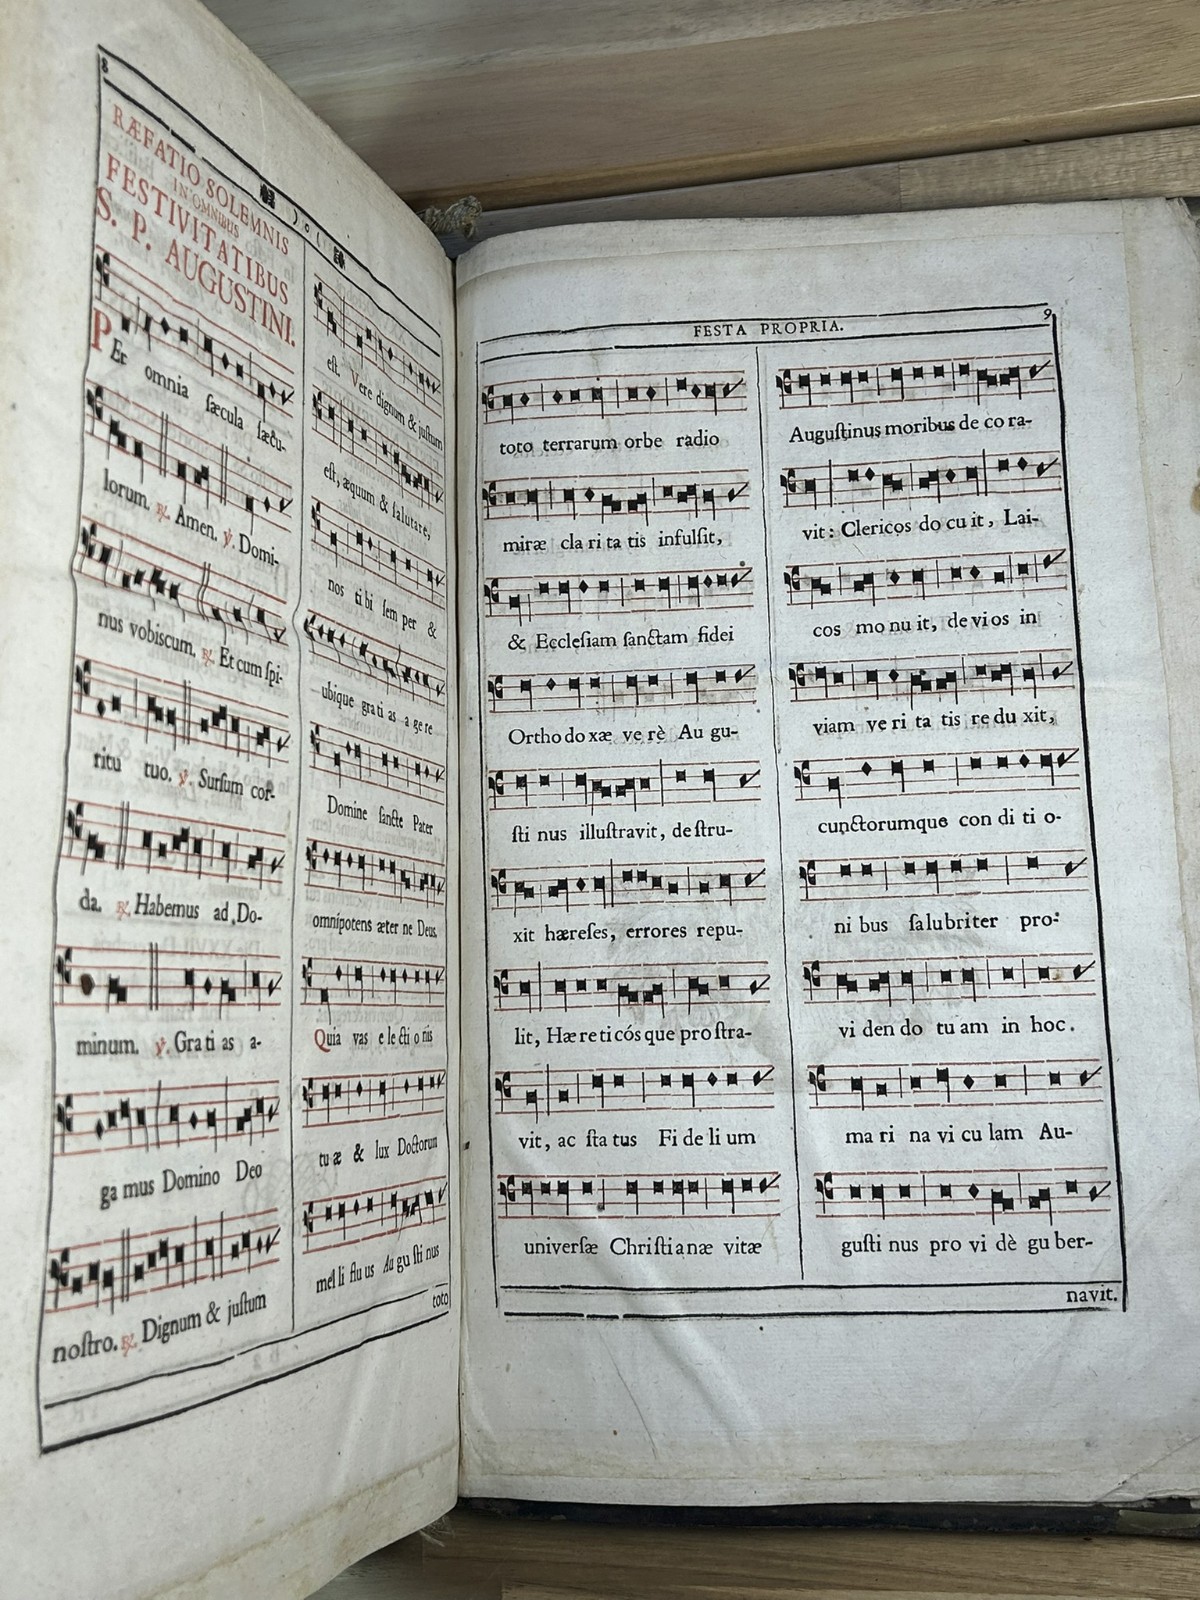 8
RÆFATIO SOLEMNIS
IN OMNIBUS
FESTIVITATIBUS
S. P. AUGUSTINI.
PEr omnia sæcula sæcu-
lorum. ℟. Amen. ℣. Domi-
nus vobiscum. ℟. Et cum spi-
ritu tuo. ℣. Sursum cor-
da. ℟. Habemus ad Do-
minum. ℣. Gra ti as a-
ga mus Domino Deo
nostro. ℟. Dignum & justum
est. Vere dignum & justum
est, æquum & salutare,
nos ti bi sem per &
ubique gra ti as a ge re
Domine sancte Pater
omnipotens æter ne Deus.
Quia vas e le cti o nis
tu æ & lux Doctorum
mel li flu us Au gu sti nus
toto
9
FESTA PROPRIA.
toto terrarum orbe radio
miræ cla ri ta tis infulsit,
& Ecclesiam sanctam fidei
Ortho do xæ ve rè Au gu-
sti nus illustravit, de stru-
xit hæreses, errores repu-
lit, Hæ re ti cós que pro stra-
vit, ac sta tus Fi de li um
universæ Christianæ vitæ
Augustinus moribus de co ra-
vit: Clericos do cu it, Lai-
cos mo nu it, de vi os in
viam ve ri ta tis re du xit,
cunctorumque con di ti o-
ni bus salubriter pro-
vi den do tu am in hoc.
ma ri na vi cu lam Au-
gusti nus pro vi dè gu ber-
navit.